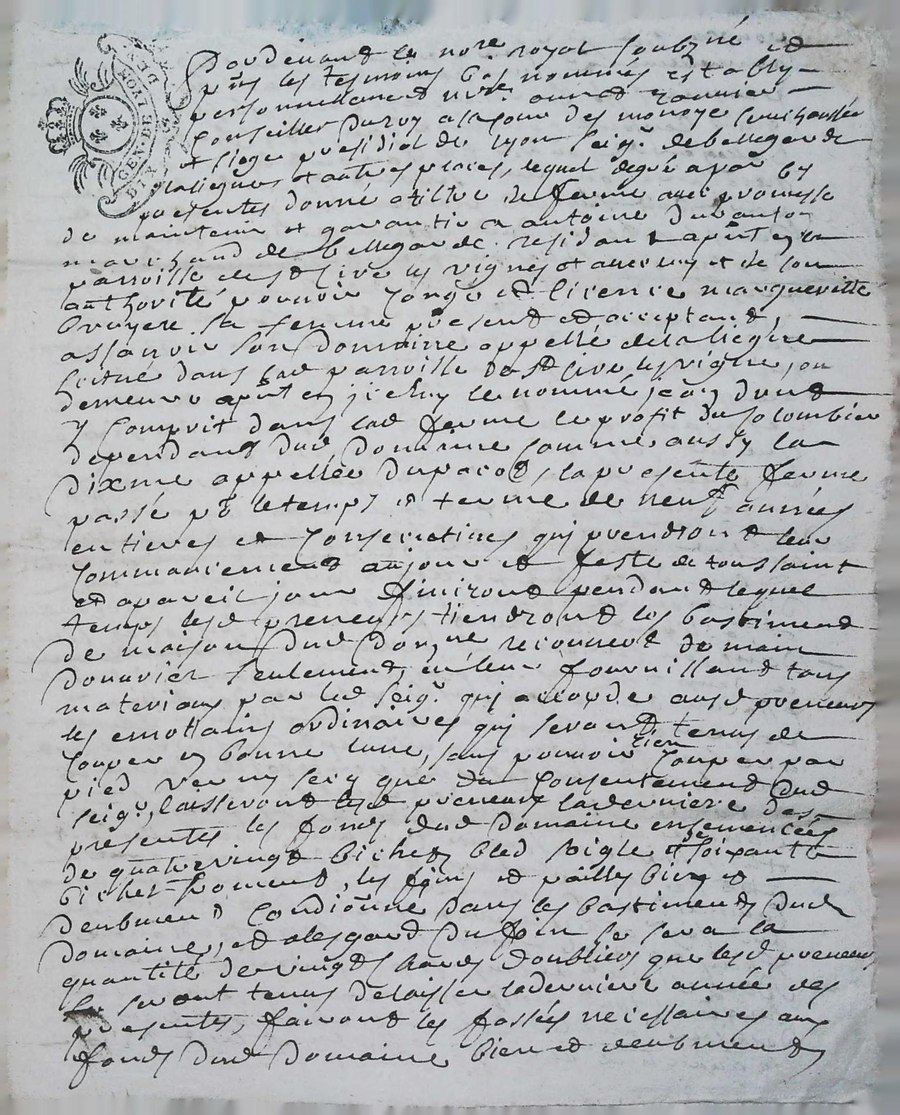 GEN. DE LYON
DIX DEN
Pardevant le no.re royal soubz.né et
p̃ns les tesmoins bas nommés estably
personnellement m.re
Conseiller du roy a la cour des monoye senechaussée
et siege presidial de lyon seig.r de bellegarde
et autres places, lequel de gré a par ces
presentes donné a tiltre de ferme avec promesse
de maintenir et garantir a antoine Duranton
marchand de bellegarde residant a p̃nt en la
parroisse de s.t Sive les vignes et avec luy et de son
authorité pouvoir congé et licence margueritte
Broyere sa femme present et acceptant,
assavoir son Domaine appellé
scitué dans lad parroisse de s.t Sive les vignes, ou
demeure a p̃nt en iceluy le nommé jean
y compris dans lad ferme le profit du colombier
dependant dud Domaine comme aussy la
dixme appellée, la presente ferme
passé p.r le temps et terme de neuf années
entieres et consecutives qui prendront leur
commancement au jour et feste de toussaint
et a pareil jour finiront pendant lequel
temps lesd preneurs tiendront les bastiment
de maison dud dom.ne recouvert de main
douvrier seulement en leur fournissant tous
materiaux par led seig.r qui accorde ausd preneurs
les ordinaires qui seront tenus de
couper en bonne lune, sans pouvoir rien couper par
pied que du consentement dud
seig.r, laisseront lesd preneurs la derniere des
presentes les fonds dud domaine ensemencés
de quatrevingt bichets bled seigle et soixante
bichet froment, les foins et pailles bien et
deubment dans les bastiments dud
Domaine, et a lesgard du foin ce sera la
quantité de vingt que lesd preneurs
seront tenus de laisser la derniere année des
presentes, fairont les fossés necessaires aux
fonds dud Domaine bien et deubment